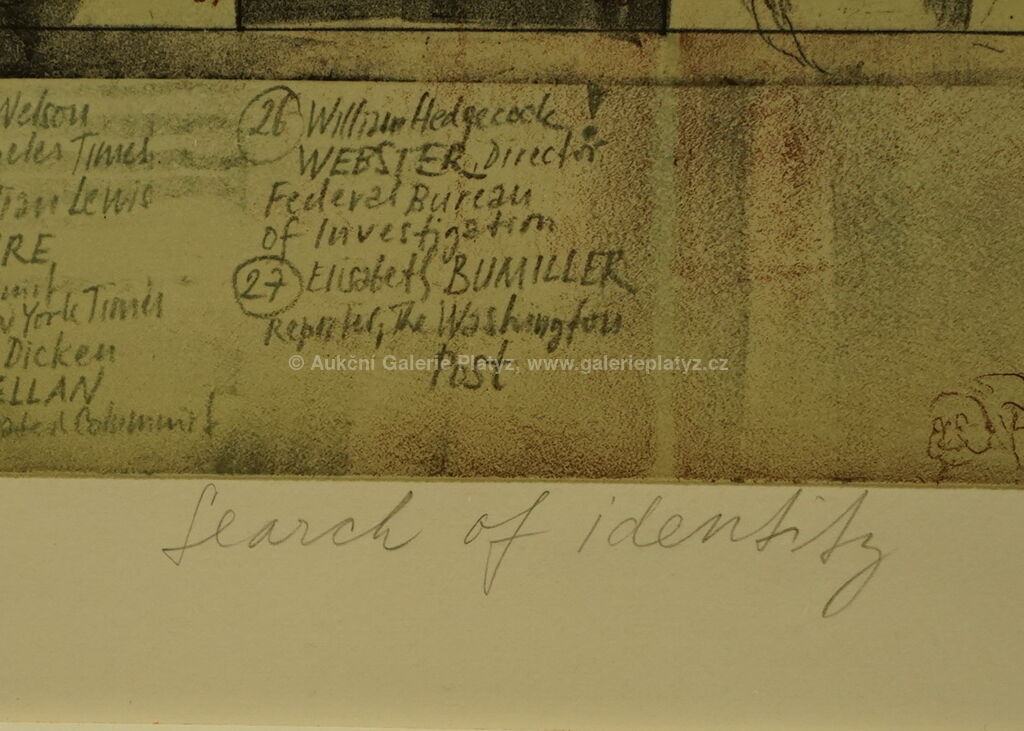 Nelson
eles Times
tian Lewis
RE
w York Times
Dicken
ELLAN
26 William Hedgecock
WEBSTER, Director
Federal Bureau
of Investigation
27 Elisabeth BUMILLER
Reporter, The Washington
Post
© Aukční Galerie Platýz, www.galerieplatyz.cz
Search of identity